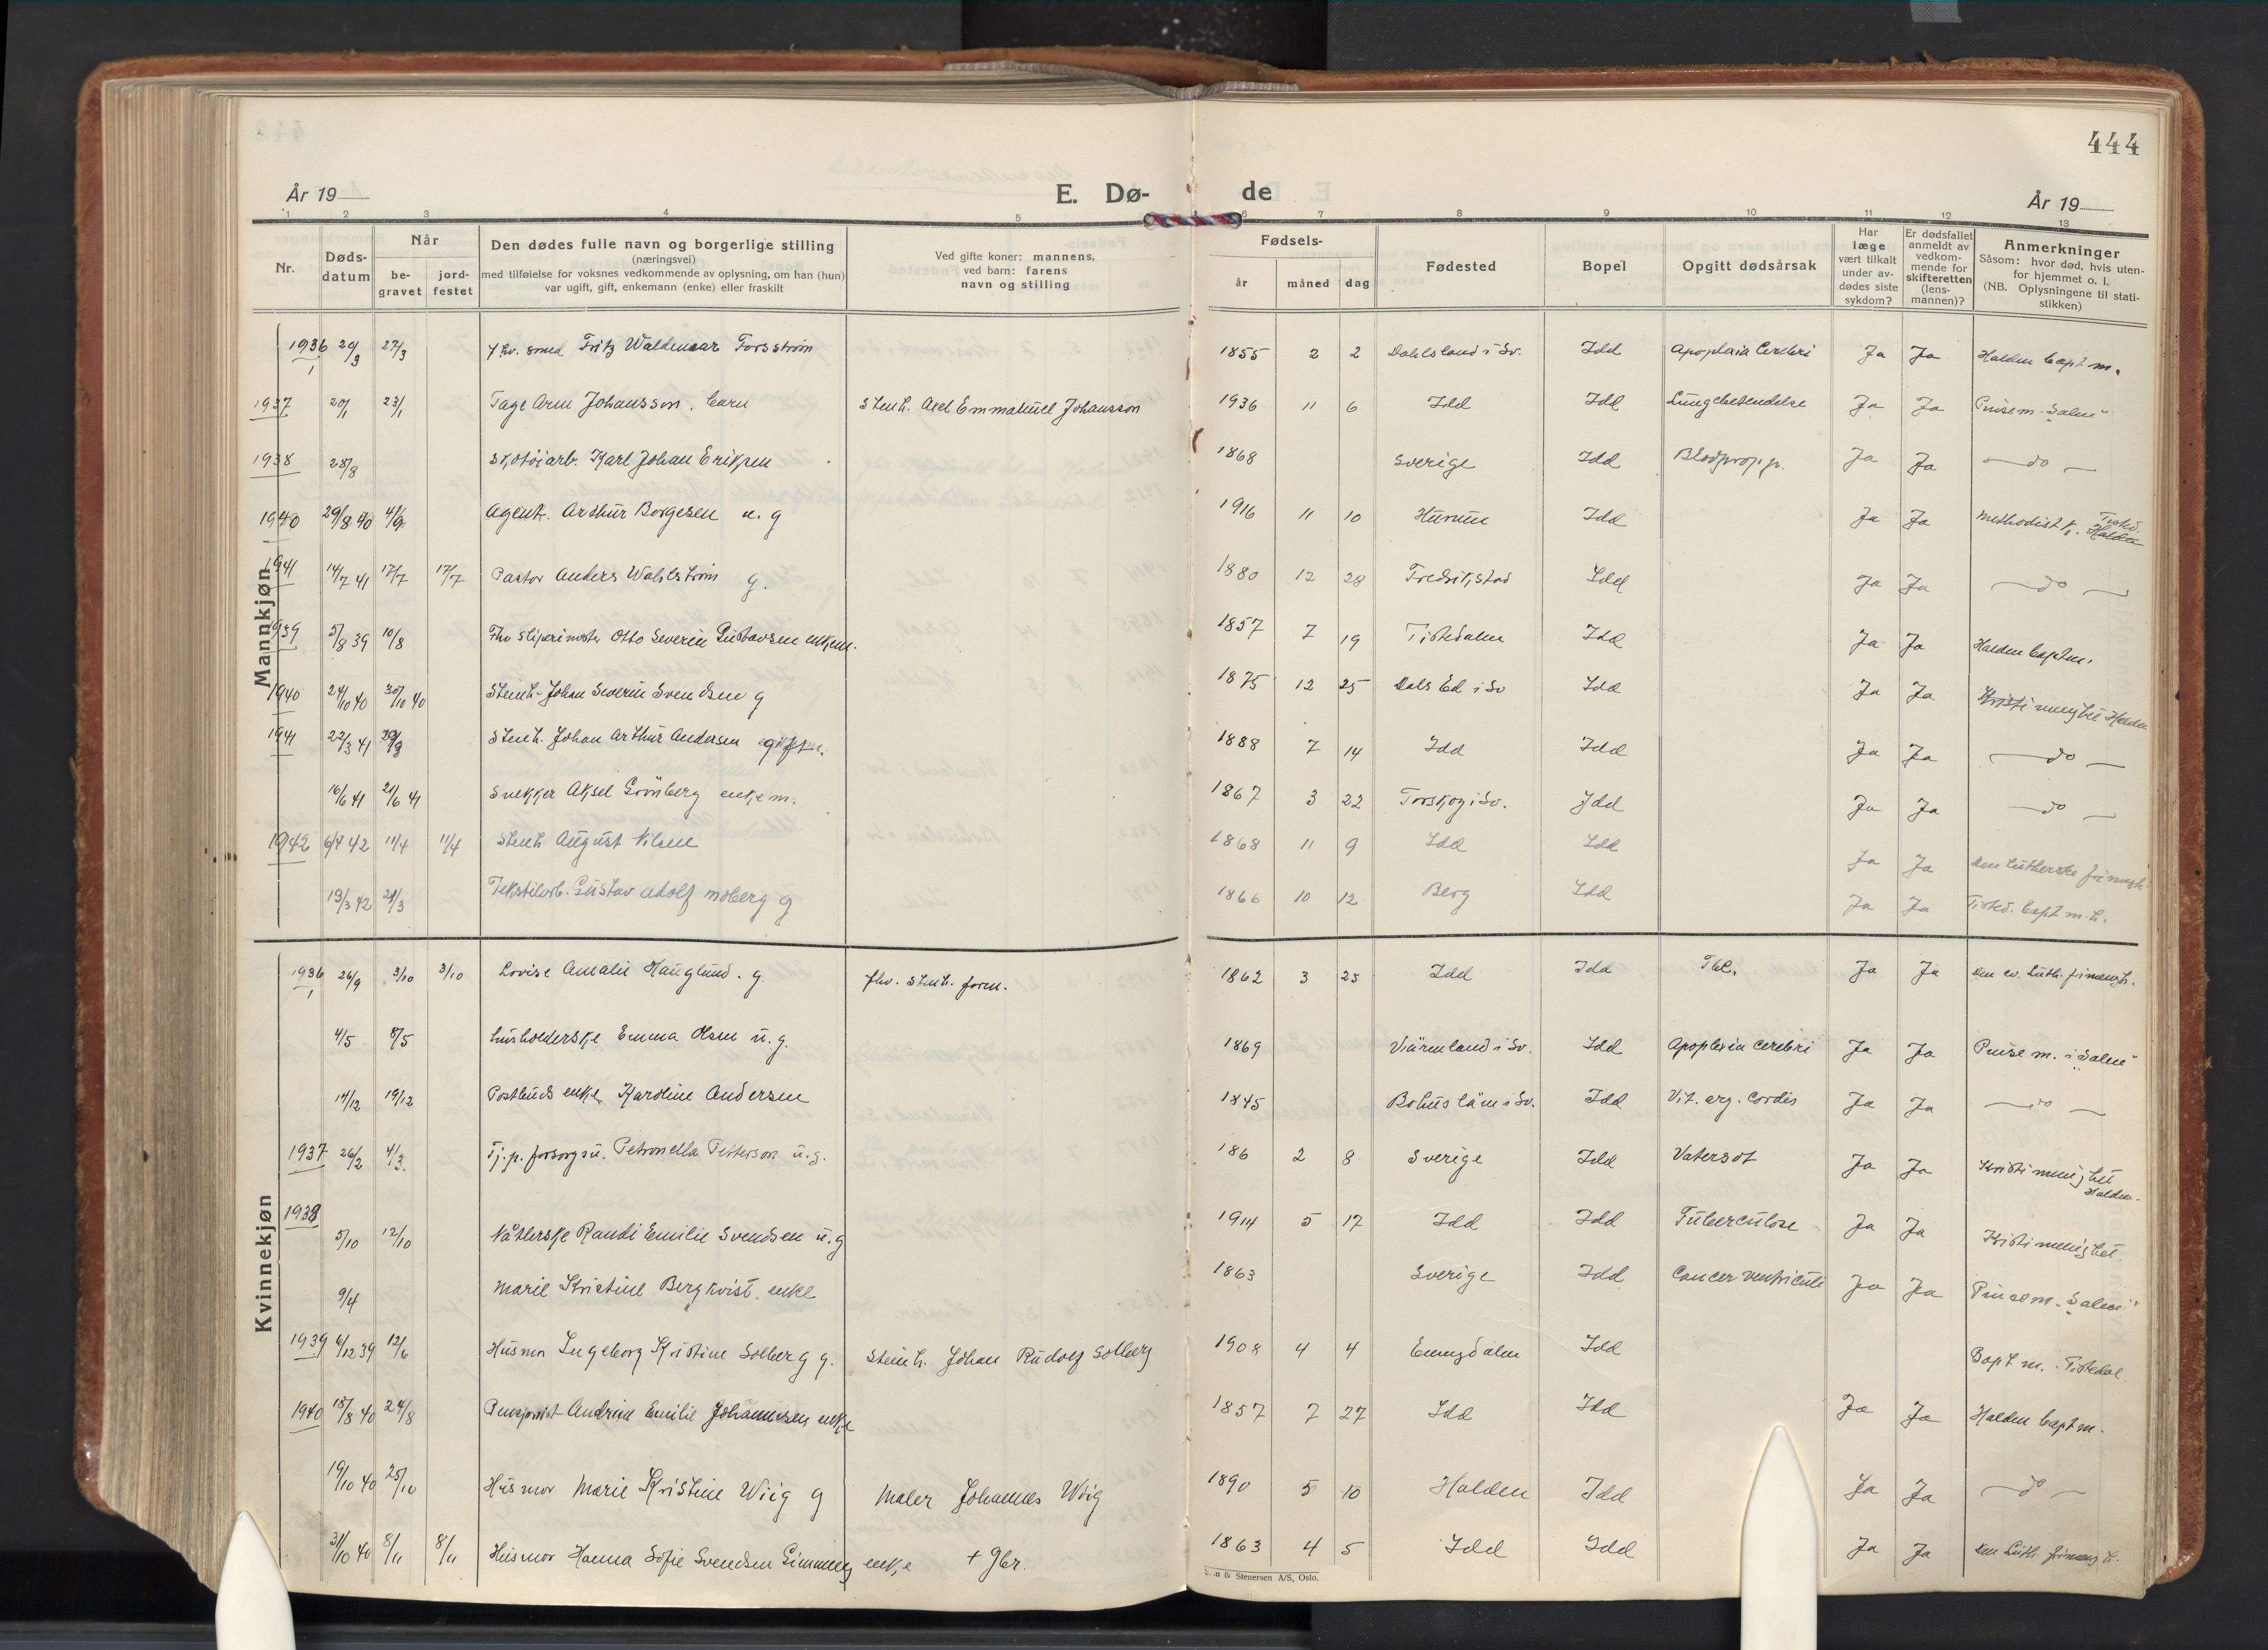 444
År 19
E. Dø-
de
År 19
1 2 3 4 5 6 7 8 9 10 11 12 13
Nr.
Døds-
datum
Når
be-
gravet
jord-
festet
Den dødes fulle navn og borgerlige stilling
(næringsvei)
med tilføielse for voksnes vedkommende av oplysning, om han (hun)
var ugift, gift, enkemann (enke) eller fraskilt
Ved gifte koner: mannens,
ved barn: farens
navn og stilling
Fødsels-
år måned dag
Fødested
Bopel
Opgitt dødsårsak
Har
læge
vært tilkalt
under av-
dødes siste
sykdom?
Er dødsfallet
anmeldt av
vedkom-
mende for
skifteretten
(lens-
mannen)?
Anmerkninger
Såsom: hvor død, hvis uten-
for hjemmet o. l.
(NB. Oplysningene til stati-
stikken)
Mannkjøn
1936 20/3 27/3 fhv. smed Fritz Waldemar Forsstrøm 1855 2 2 Dahlsland i Sv. Idd Apoplexia Cerebri Ja Ja Halden bapt m.
1937 20/1 23/1 Tage Arne Johansson. barn Stenh. Axel Emmanuel Johansson 1936 11 6 Idd Idd Lungebetendelse Ja Ja Pinsem. Salen"
1938 28/8 Skotøiarb. Karl Johan Eriksen 1868 Sverige Idd Blodpropp. Ja Ja — do —
1940 29/8 40 4/9 Agent. Arthur Borgesen u. g 1916 11 10 Hurum Idd Ja Ja Methodist k. Tisted. Halden
1941 14/7 41 17/7 17/7 Pastor Anders Wahlstrøm g. 1880 12 28 Fredrikstad Idd Ja Ja — do —
1939 5/8 39 10/8 Fhv sliperimester Otto Severin Gustavsen enkem. 1857 7 19 Tistedalen Idd Ja Ja Halden baptm.
1940 24/10 40 30/10 40 Stenh. Johan Severin Svendsen g 1875 12 25 Dals Ed i Sv Idd Ja Ja Kristi menghet Halden
1941 22/3 41 Stenh. Johan Arthur Andersen gift. 1888 7 14 Idd Idd Ja Ja — do —
16/6 41 21/6 41 Snekker Aksel Grönberg enkem. 1867 3 22 Torskog i Sv. Idd Ja Ja — do —
1942 6/4 42 11/4 11/4 Stenh August Nilsen 1868 11 9 Idd Idd Ja Ja Den lutherske frimegh.
19/3 42 21/3 Tekstilarb. Gustav Adolf Moberg g 1866 10 12 Berg Idd Ja Ja Tisted. bapt m.h.
Kvinnekjøn
1936 26/9 3/10 3/10 Lovise Amalie Hauglund. g. fhv. Stenh. form. 1862 3 25 Idd Idd Tbl. Ja Ja Den ev. Luth. frimengh.
4/5 8/5 husholderske Emma Olsen u. g. 1869 Värmland i Sv. Idd Apoplexia Cerebri Ja Ja Pinse m. i Salen"
14/12 19/12 Postbuds enke Karoline Andersen 1845 Bohuslän i Sv. Idd Vit. org. Cordis Ja Ja — do —
1937 26/2 4/3. Tj. p. forsorgsu. Petronella Petterson u. g. 186 2 8 Sverige Idd Vatersot Ja Ja Kristi menighet Halden.
1938
5/10 12/10 Nåtlerske Randi Emilie Svendsen u. g 1914 5 17 Idd Idd Tuberculose Ja Ja Kristi menighet.
9/4 Marie Kristine Bergkvist. enke 1863 Sverige Idd Cancer ventriculi Ja Ja Pinsem. Salen"
1939 6/12 39 12/6 Husmor Ingeborg Kristine Solberg g. Stenh. Johan Rudolf Solberg 1908 4 4 Enningdalen Idd Bapt m. Tistedal
1940 18/8 40 24/8 Pensjonist Andrine Emilie Johannesen enke 1857 7 27 Idd Idd Ja Ja Halden bapt m.
19/10 40 25/10 Husmor Marie Kristine Wiig g Maler Johannes Wiig 1890 5 10 Halden Idd Ja Ja — do —
31/10 40 8/11 8/11 Husmor Hanna Sofie Svendsen Gimming enke + Gbr. 1863 4 5 Idd Idd Ja Ja Den Luth. frimengh.
& Stenersen A/S, Oslo.